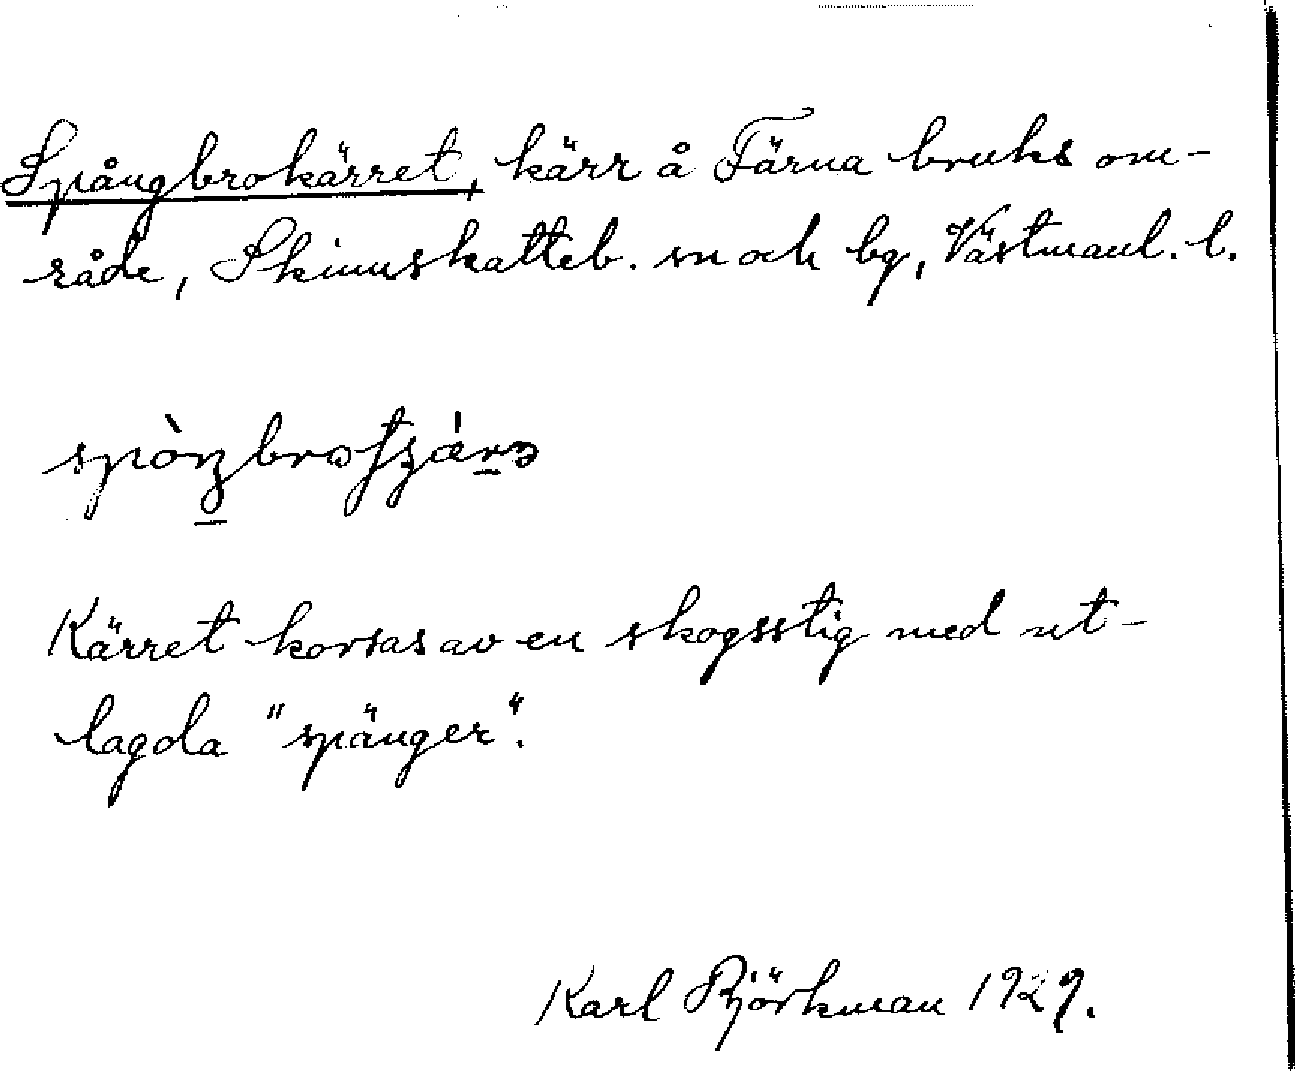 Spångbrokärret, kärr å Färna bruks om-
råde, Skinnskatteb. sn och bg, Västmanl. l.
Kärret korsas av en skogsstig med ut-
lagda "spänger".
Karl Björkman 1929.